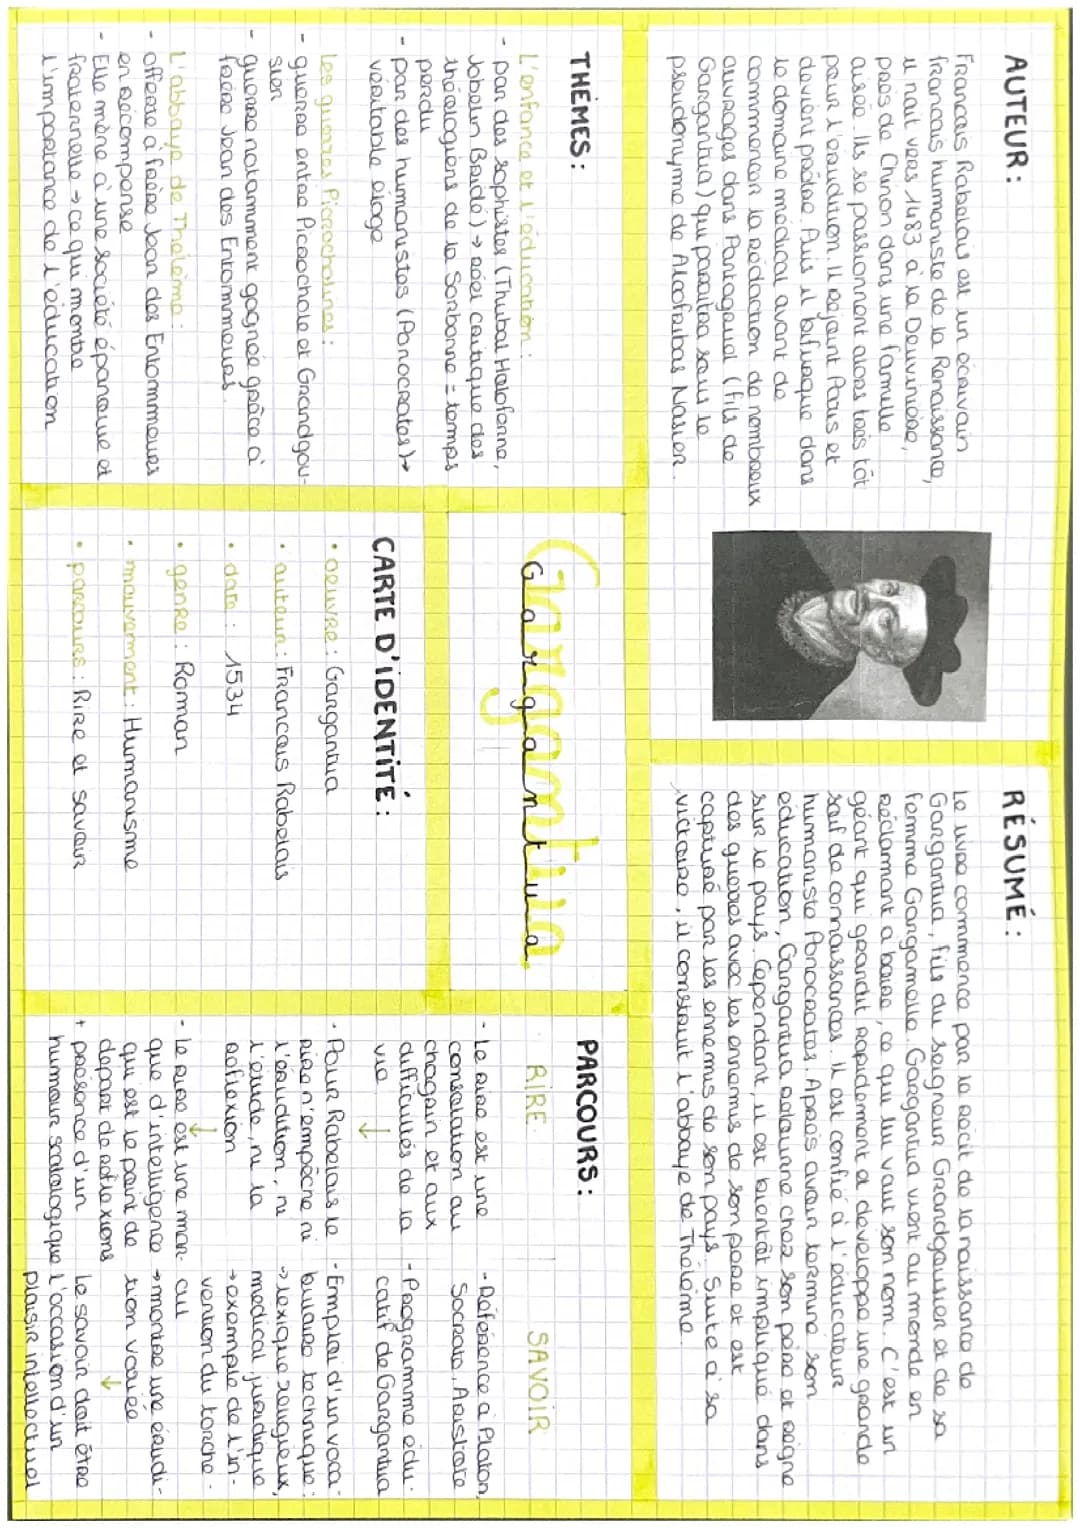 AUTEUR :
Francois Rabelais est un écrivain
francais humaniste de la Renaissance,
il nait vers 1483 à la Deuvinière,
près de Chinon dans une famille
aisée. Ils se passionnent alors très tôt
pour l'érudition. Il rejoint Paris et
devient prêtre. Puis il bifurque dans
le domaine médical avant de
commencer la rédaction de nombreux
ouvrages dans Pantagruel (fils de
Gargantua) qui paraitra sous le
pseudonyme de Alcofribas Nasier.
RÉSUMÉ :
Le livre commence par le récit de la naissance de
Gargantua, fils du seigneur Grandgousier et de sa
femme Gargamelle. Gargantua vient au monde en
réclamant à boire, ce qui lui vaut son nom. C'est un
géant qui grandit rapidement et développe une grande
soif de connaissances. Il est confié à l'éducateur
humaniste Ponocrates. Après avoir terminé son
éducation, Gargantua retourne chez son père et règne
sur le pays. Cependant, il est bientôt impliqué dans
des guerres avec les ennemis de son père et est
capturé par les ennemis de son pays. Suite à sa
victoire, il construit l'abbaye de Thélème.
THÈMES :
L'enfance et l'éducation :
- par des sophistes (Thubal Holoferne,
Jobelin Bridé) → réel critique des
théologiens de la Sorbonne = temps
perdu
- par des humanistes (Ponocrates) →
véritable éloge
Les guerres Picrocholines :
- guerre entre Picrochole et Grandgou-
sier
- guerre notamment gagnée grâce à
frère Jean des Entommeures.
L'abbaye de Thélème :
- offerte a frère Jean des Entommeures
en récompense
- Elle mène à une société épanouie et
fraternelle → ce qui montre
l'importance de l'éducation
Gargantua
Gargantua
CARTE D'IDENTITÉ :
• oeuvre : Gargantua
• auteur : Francois Rabelais
• date : 1534
• genre : Roman
• mouvement : Humanisme
• parcours : Rire et savoir
PARCOURS :
RIRE
- Le rire est une
consolation au
chagrin et aux
difficultés de la
vie
↓
- Pour Rabelais le
rire n'empêche ni
l'érudition, ni
l'étude, ni la
réflexion
↓
- le rire est une mar-
que d'intelligence
qui est le point de
départ de réflexions
+ présence d'un
humour scatologique
SAVOIR
- Référence à Platon,
Socrate, Aristote
- Programme édu-
catif de Gargantua
- Emploi d'un voca-
bulaire technique :
→ lexique religieux,
médical, juridique
→ exemple de l'in-
vention du torche-
cul
→ montre une érudi-
tion variée
↓
Le savoir doit être
l'occasion d'un
plaisir intellectuel